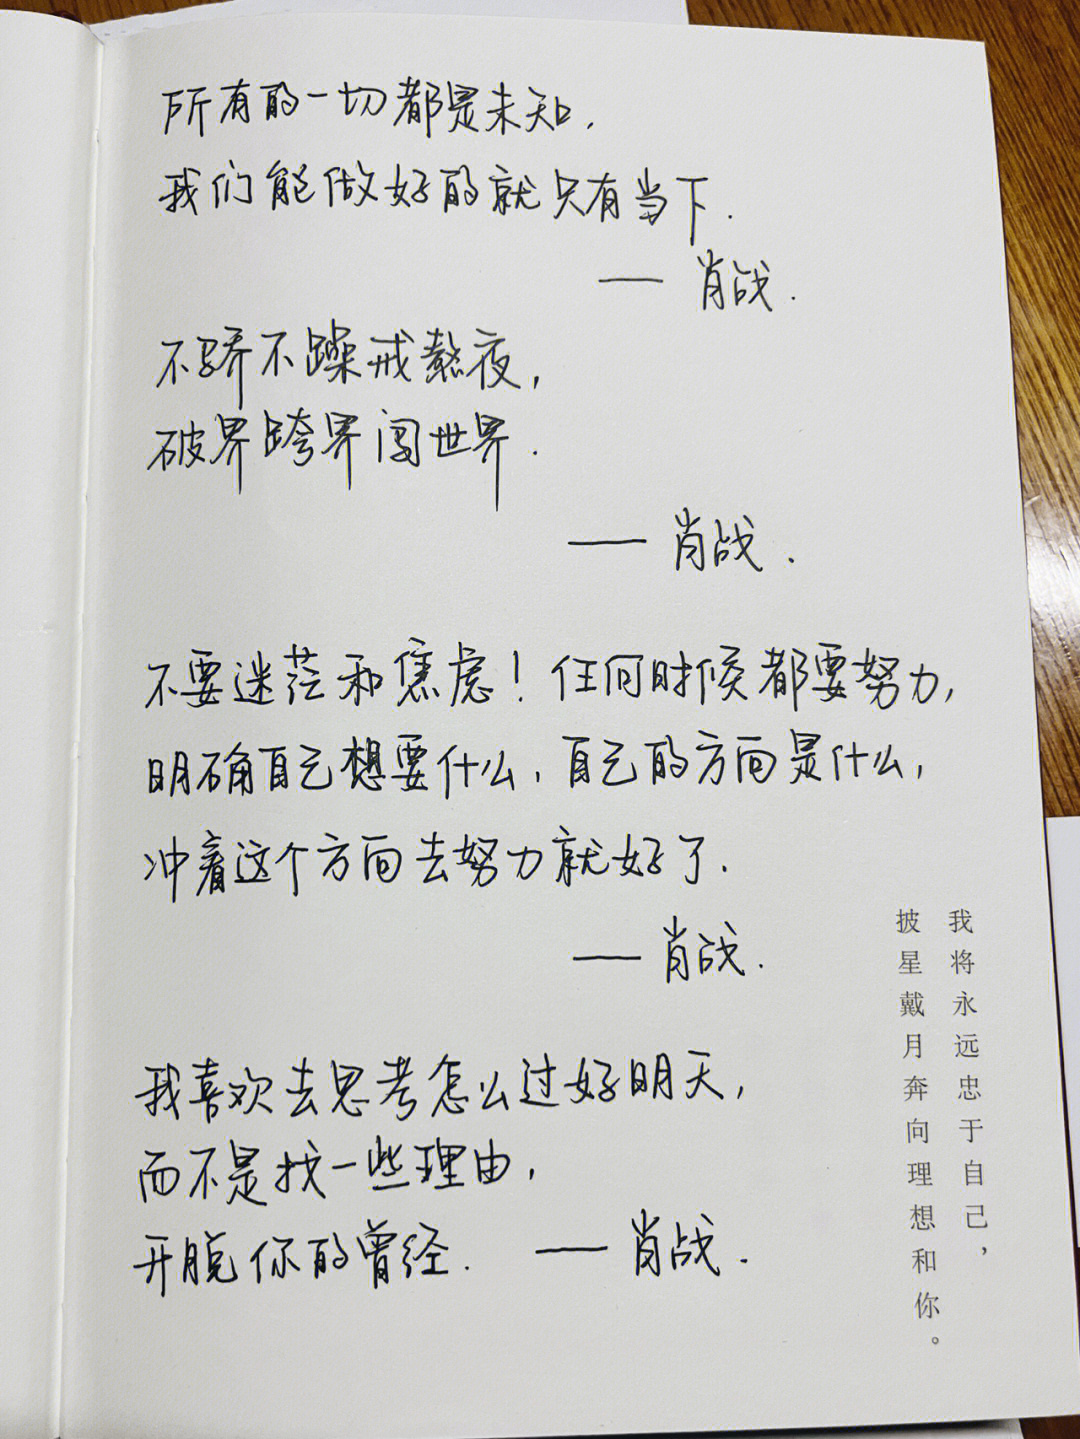 所有的一切都是未知.
我们能做好的就只有当下.
—— 肖战.
不骄不躁戒熬夜,
破界跨界闯世界.
—— 肖战.
不要迷茫和焦虑！任何时候都要努力,
明确自己想要什么,自己的方向是什么,
冲着这个方向去努力就好了.
—— 肖战.
我喜欢去思考怎么过好明天,
而不是找一些理由,
开脱你的曾经. —— 肖战.
我将永远忠于自己，
披星戴月奔向理想和你。